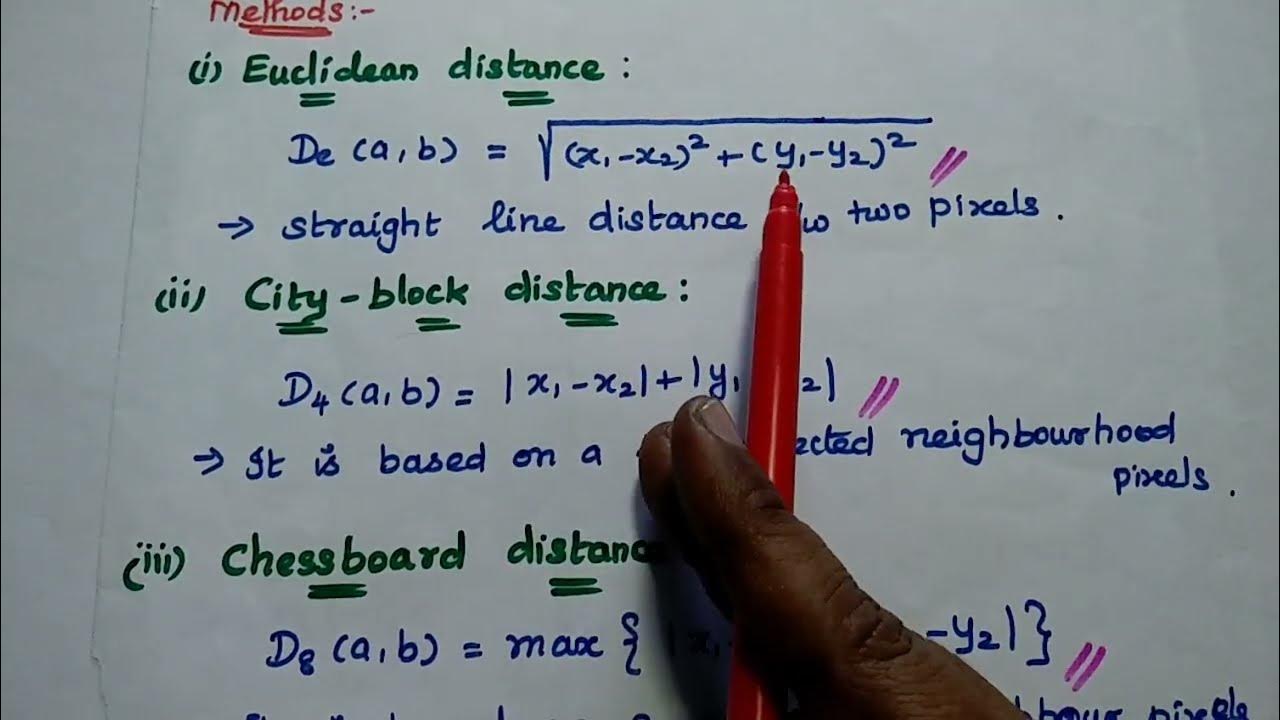 Methods:-
(i) Euclidean distance :
De (a, b) = √(x₁-x₂)² + (y₁-y₂)²
→ straight line distance two pixels .
(ii) City-block distance :
D₄ (a, b) = |x₁-x₂| + |y₁ ₂|
→ It is based on a neighbourhood
pixels .
(iii) Chessboard distance
D₈ (a, b) = max { |x₁ -y₂| }
pixels